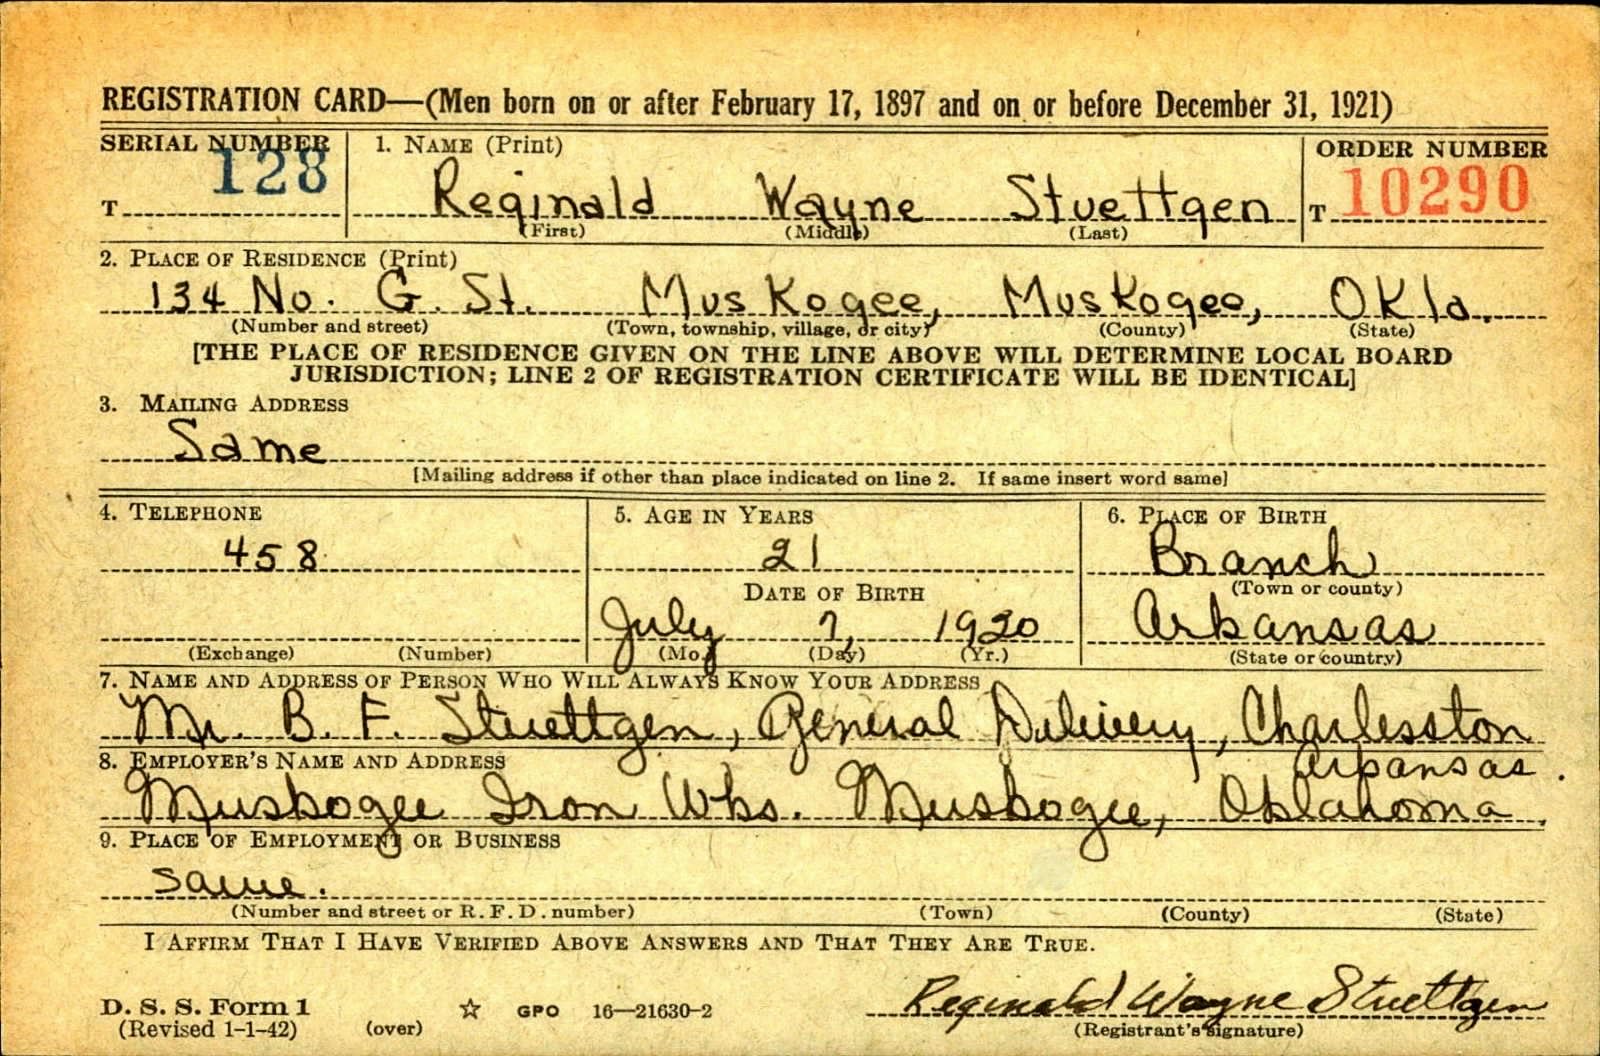 REGISTRATION CARD—(Men born on or after February 17, 1897 and on or before December 31, 1921)
SERIAL NUMBER 1. NAME (Print) ORDER NUMBER
T 128 Reginald Wayne Stuettgen T 10290
(First) (Middle) (Last)
2. PLACE OF RESIDENCE (Print)
134 No. G. St. Muskogee, Muskogee, Okla.
(Number and street) (Town, township, village, or city) (County) (State)
[THE PLACE OF RESIDENCE GIVEN ON THE LINE ABOVE WILL DETERMINE LOCAL BOARD
JURISDICTION; LINE 2 OF REGISTRATION CERTIFICATE WILL BE IDENTICAL]
3. MAILING ADDRESS
Same
[Mailing address if other than place indicated on line 2. If same insert word same]
4. TELEPHONE 5. AGE IN YEARS 6. PLACE OF BIRTH
458 21 Branch
DATE OF BIRTH (Town or county)
July 7, 1920 Arkansas
(Exchange) (Number) (Mo.) (Day) (Yr.) (State or country)
7. NAME AND ADDRESS OF PERSON WHO WILL ALWAYS KNOW YOUR ADDRESS
Mr. B. F. Stuettgen, General Delivery, Charlesston
Arkansas.
8. EMPLOYER'S NAME AND ADDRESS
Muskogee Iron Wks. Muskogee, Oklahoma.
9. PLACE OF EMPLOYMENT OR BUSINESS
same.
(Number and street or R. F. D. number) (Town) (County) (State)
I AFFIRM THAT I HAVE VERIFIED ABOVE ANSWERS AND THAT THEY ARE TRUE.
Reginald Wayne Stuettgen
D. S. S. Form 1 GPO 16—21630-2
(Revised 1-1-42) (over) (Registrant's signature)